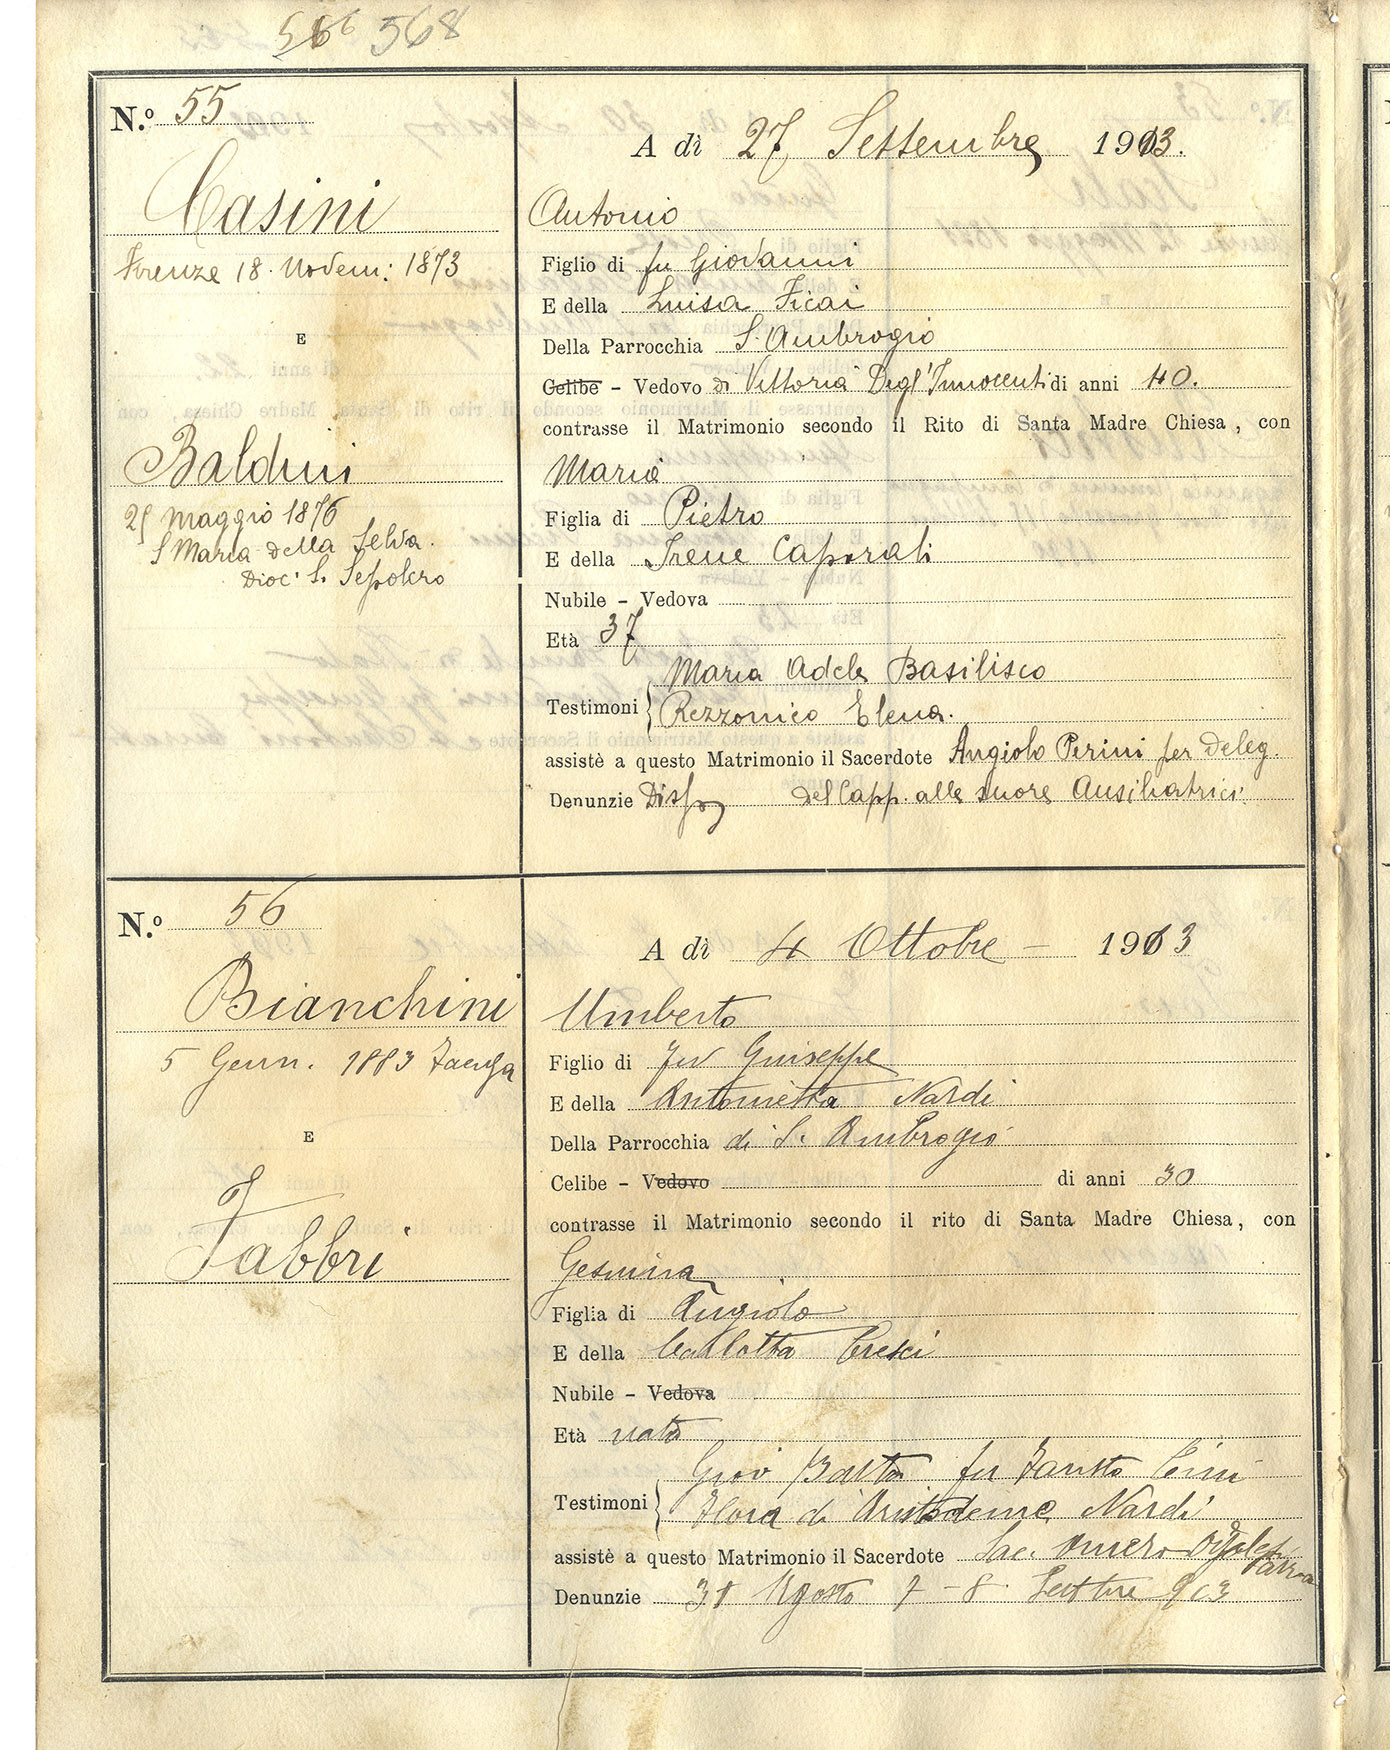 568
N.º 55
A dì 27 Settembre 1913.
Casini
Antonio
Firenze 18. Novem: 1873
Figlio di fu Giovanni
E della Luisa Ficai
E
Della Parrocchia S. Ambrogio
Celibe - Vedovo di Vittoria Degl'Innocenti di anni 40.
contrasse il Matrimonio secondo il Rito di Santa Madre Chiesa, con
Baldini
Maria
25 Maggio 1876
Figlia di Pietro
S Maria della Selva.
E della Irene Caporali
Dioc: S. Sepolcro
Nubile - Vedova
Età 37
Testimoni { Maria Adele Basilisco
Rezzonico Elena.
assistè a questo Matrimonio il Sacerdote Angiolo Perini per deleg.
Denunzie Disp. del Capp. alle suore Ausiliatrici
N.º 56
A dì 4 Ottobre - 1913
Bianchini
Umberto
5 Genn. 1883
Figlio di fu Giuseppe
E della Antonietta Nardi
E
Della Parrocchia di S. Ambrogio
Celibe - Vedovo di anni 30
contrasse il Matrimonio secondo il rito di Santa Madre Chiesa, con
Fabbri
Gesmina
Figlia di Angiolo
E della Carlotta Cresci
Nubile - Vedova
Età
Testimoni { Giov Batta fu Fausto Cini
Flora di Aristodemo Nardi
assistè a questo Matrimonio il Sacerdote Sac. Omero
Denunzie 31 Agosto 7 - 8 Settbre 913